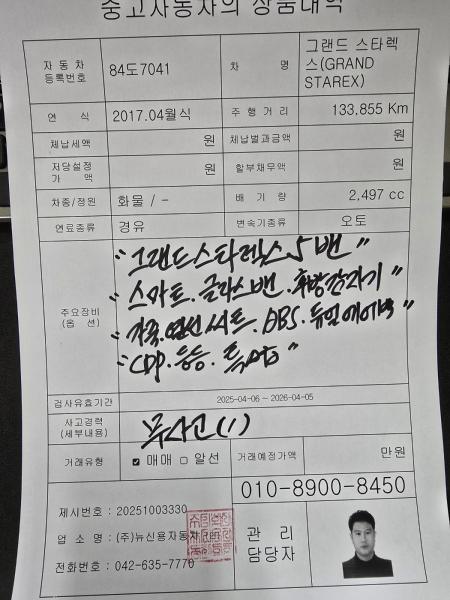 중고자동차의 상품내역
자동차 등록번호 84도7041 차 명 그랜드 스타렉스(GRAND STAREX)
연 식 2017.04월식 주행거리 133,855 Km
체납세액 원 체납벌과금액 원
저당설정 가 액 원 할부채무액 원
차종/정원 화물 / - 배 기 량 2,497 cc
연료종류 경유 변속기종류 오토
주요장비 (옵 션)
"그랜드스타렉스 5밴"
"스마트.글라스밴.후방감지기"
"가죽.열선시트.ABS.듀얼에어백"
"CDP.등등.특A급"
검사유효기간 2025-04-06 ~ 2026-04-05
사고경력 (세부내용) 무사고(1)
거래유형 ☑ 매매 □ 알선 거래예정가액 만원
010-8900-8450
제시번호 : 20251003330
업 소 명 : (주)뉴신용자동차
전화번호 : 042-635-7770
관 리 담당자